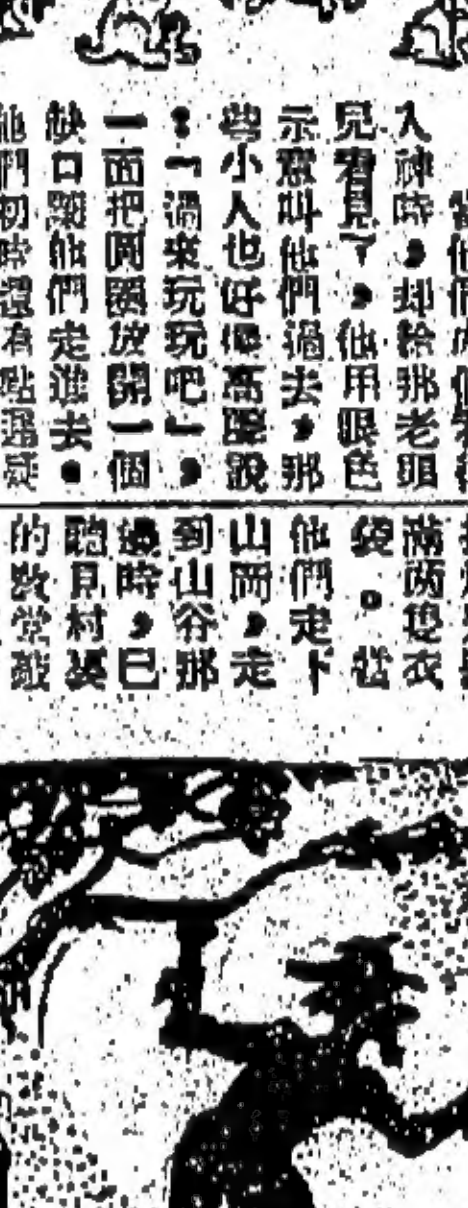 當他們
入神時，却給那老頭
兒看見了，他用眼色
示意叫他們過去，那
些小人也好像高興說
：「過來玩玩吧」，
一面把圓圈放開一個
缺口讓他們走進去。
他們初時還有點遲疑
滿两隻衣
袋。
他們走下
山岡，走
到山谷那
邊時，已
聽見村裏
的教堂敲